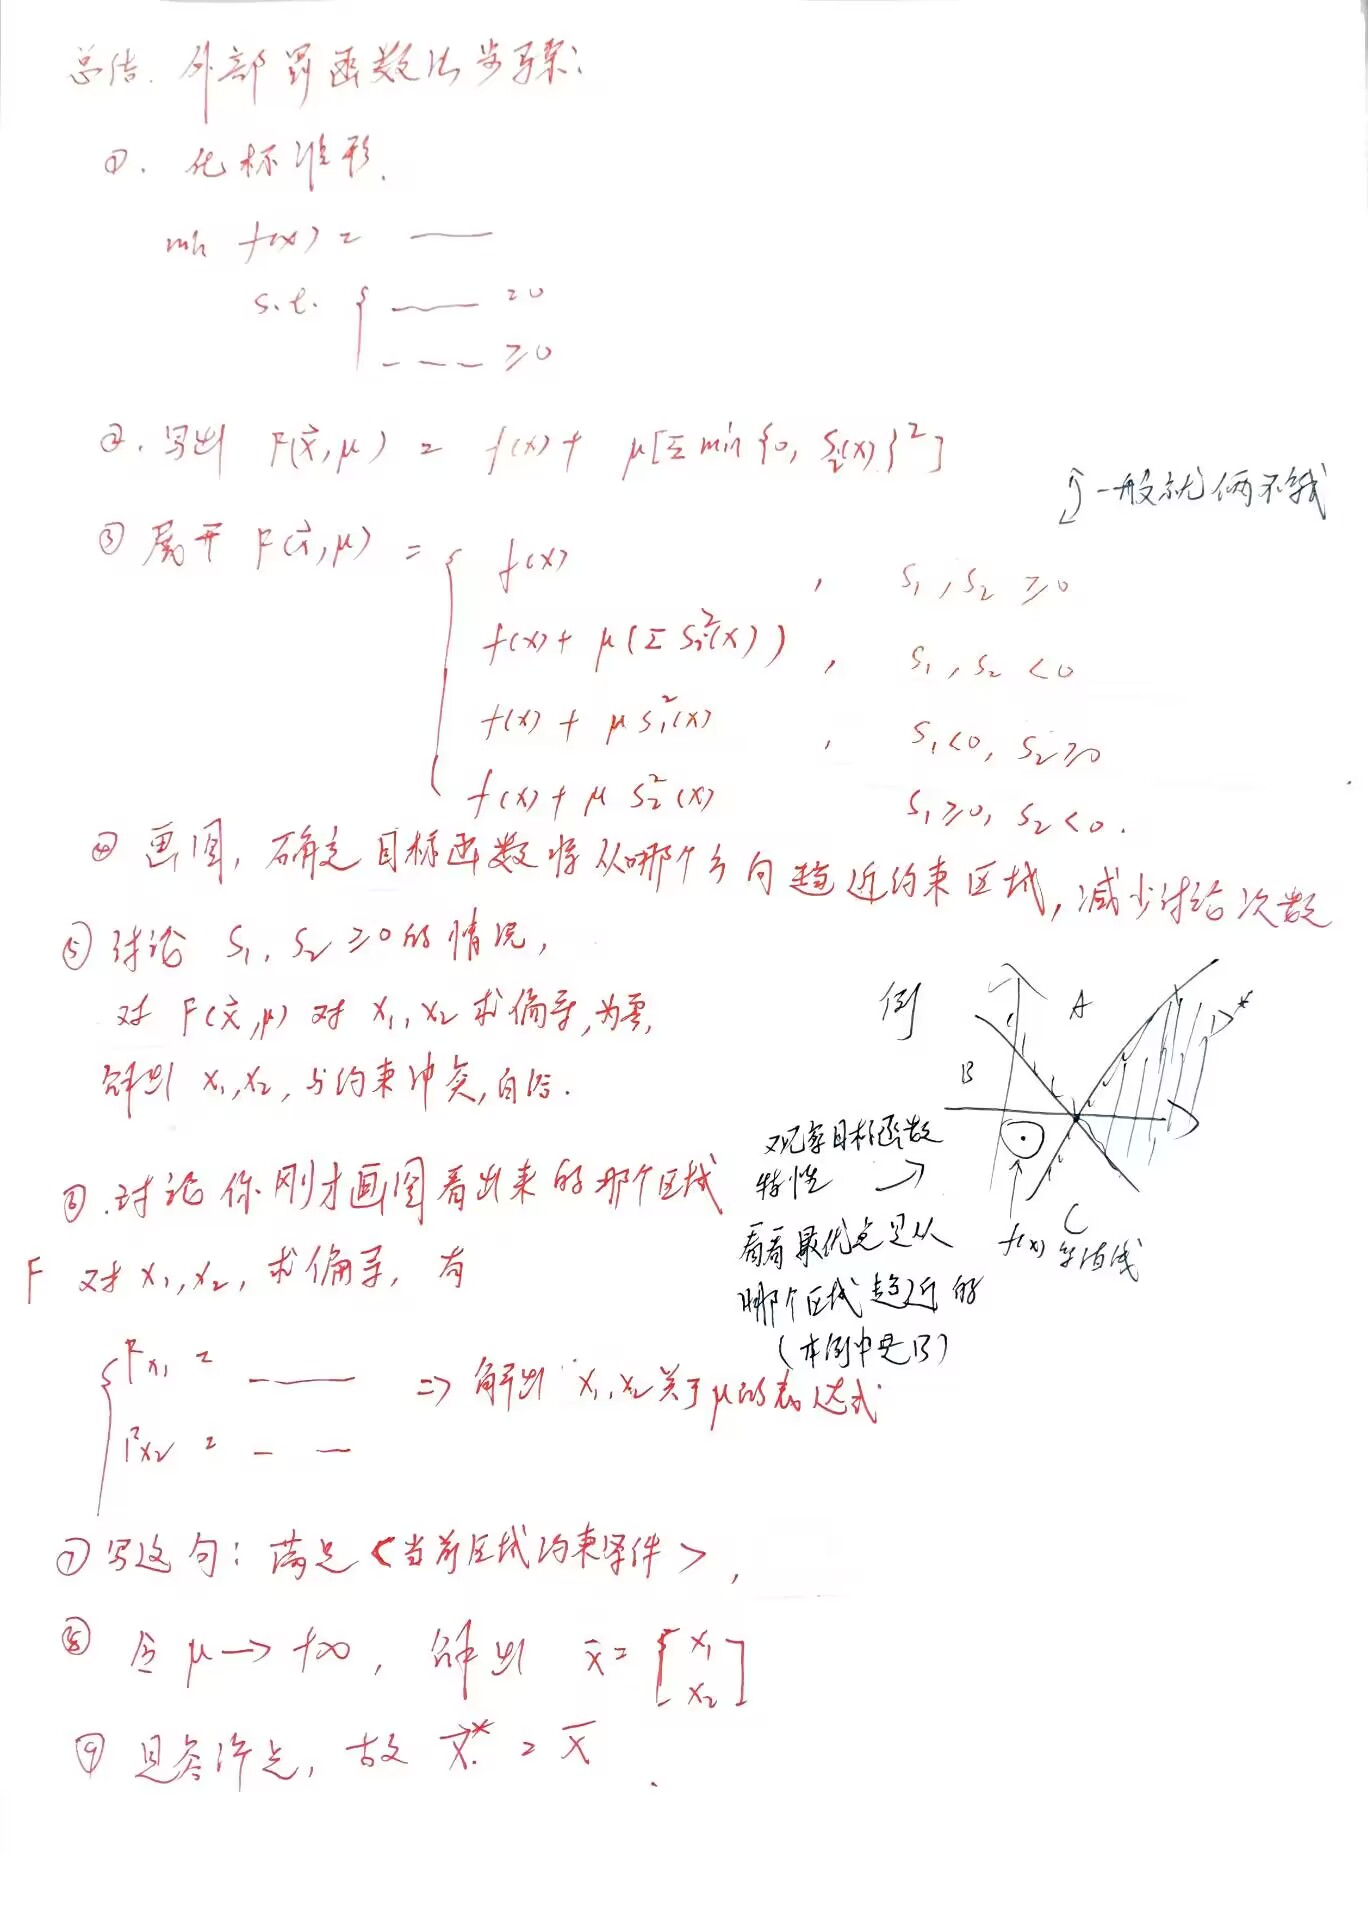 总结. 外部罚函数法步骤:
①. 化标准形.
min f(x) =
s.t. { =0
≥0
②. 写出 F(x⃗,μ) = f(x) + μ[Σ min{0, Sᵢ(x)}²]
一般就俩不等式
③ 展开 F(x⃗,μ) = { f(x) , S₁, S₂ ≥0
f(x) + μ(Σ Sᵢ²(x)) , S₁, S₂ <0
f(x) + μ S₁²(x) , S₁<0, S₂≥0
f(x) + μ S₂²(x) S₁≥0, S₂<0.
④ 画图, 确定目标函数将从哪个方向趋近约束区域, 减少讨论次数
⑤ 讨论 S₁, S₂ ≥0 的情况,
对 F(x⃗,μ) 对 x₁, x₂ 求偏导, 为零,
解出 x₁, x₂, 与约束冲突, 自
例
A
B
C
f(x) 等值线
观察目标函数
特性 →
看看最优点是从
哪个区域趋近的
(本例中是B)
⑥. 讨论你刚才画图看出来的那个区域
F 对 x₁, x₂, 求偏导, 有
{ Fx₁ =
Fx₂ =
=> 解出 x₁, x₂ 关于 μ 的表达式
⑦ 写这句: 满足 <当前区域约束条件>,
⑧ 令 μ → +∞, 解出 x̄ = [x₁
x₂]
⑨ 是容许点, 故 x⃗* = x̄.